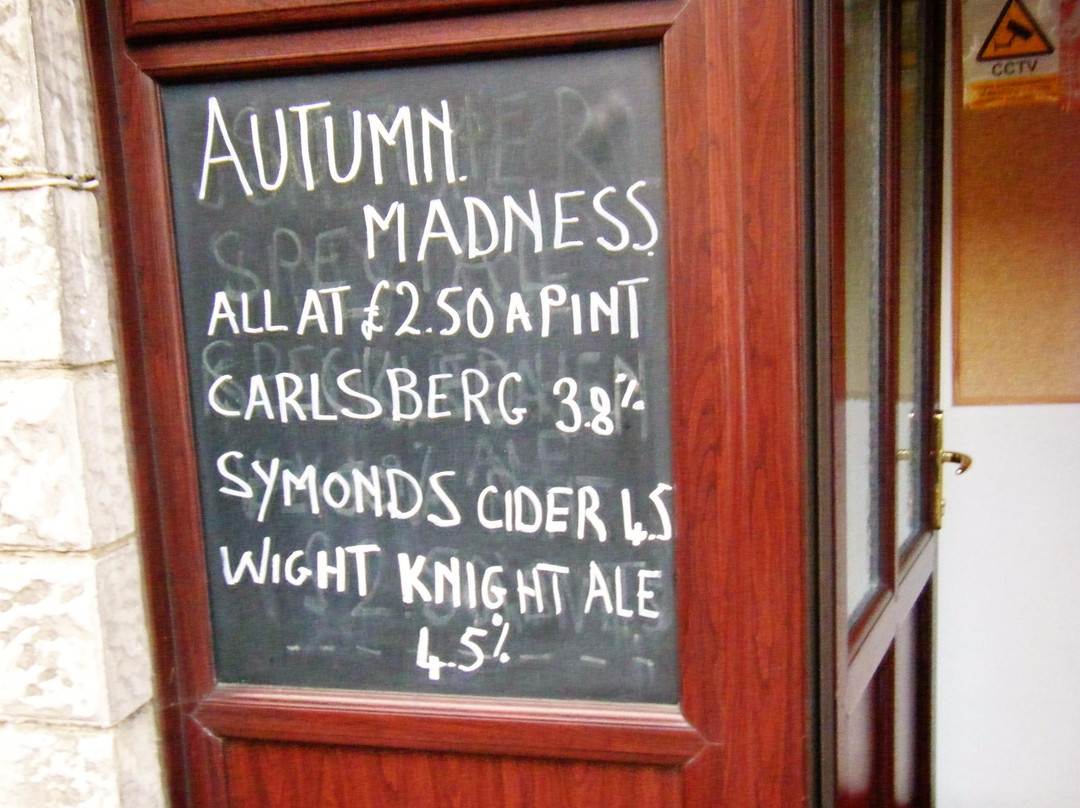 AUTUMN.
MADNESS.
ALL AT £2.50 A PINT
CARLSBERG 3.8%
SYMONDS CIDER 4.5
WIGHT KNIGHT ALE
4.5%
CCTV